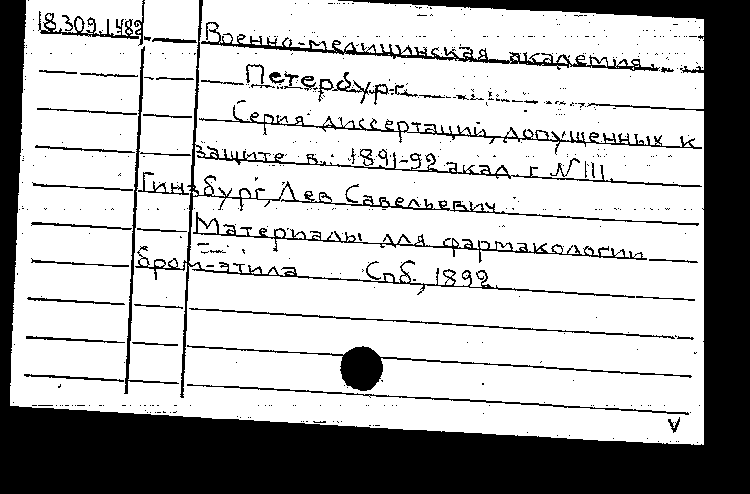 18.309.1.482 Военно-медицинская академия.
Петербург.
Серия диссертаций, допущенных к
защите в.: 1891-92 акад. г. № 111.
Гинзбург, Лев Савельевич.
Материалы для фармакологии
бром-этила Спб., 1892.
V